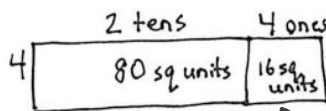 2 tens 4 ones
4 80 sq units 16 sq
units